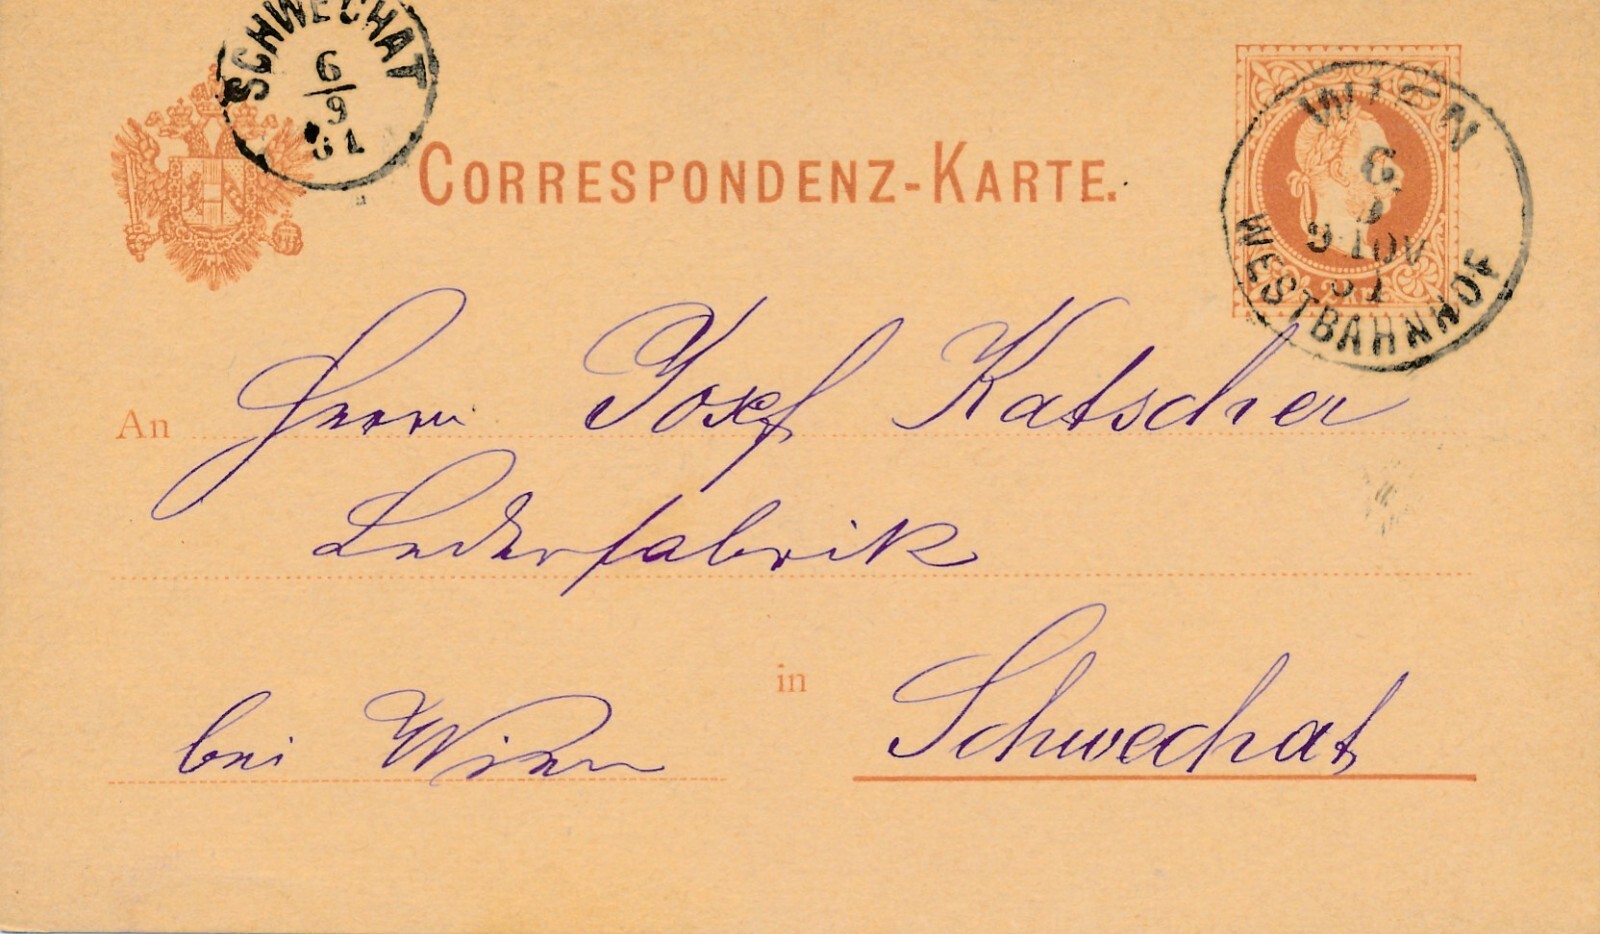 SCHWECHAT
6/9
81
CORRESPONDENZ-KARTE.
WIEN
6
9
9-10V
81
WESTBAHNHOF
2 KR
An Herrn Josef Katscher
Lederfabrik
in
bei Wien Schwechat